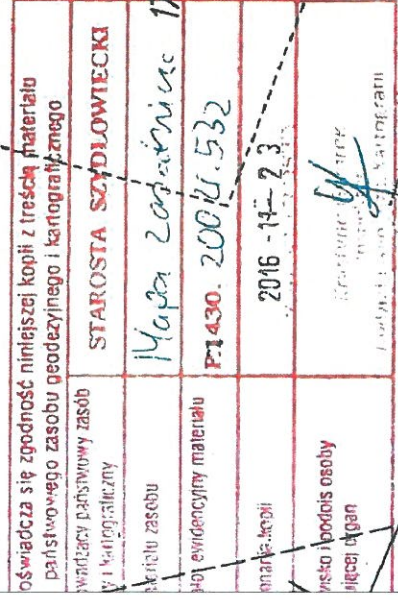 oświadcza się zgodność niniejszej kopii z treścią materiału
państwowego zasobu geodezyjnego i kartograficznego
wadzący państwowy zasób
y kartograficzny
STAROSTA SZYDŁOWIECKI
materiału zasobu
Mapa zasadnicza 17
ewidencyjny materiału
P.1430. 2004.532
onania kopii
2016 -11- 23
wisko i podpis osoby
ującej organ